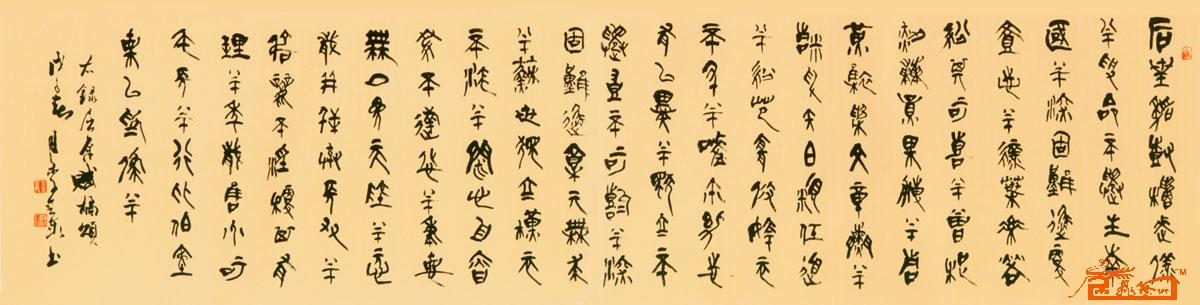 后皇嘉樹橘徠服
兮受命不遷生南
國兮深固難徙更
壹志兮綠葉素榮
紛其可喜兮曾枝
剡棘圓果摶兮青
黃雜糅文章爛兮
精色內白類任道
兮紛縕宜修姱而
不醜兮嗟爾幼志
有以異兮獨立不
遷豈不可喜兮深
固難徙廓其無求
兮蘇世獨立橫而
不流兮閉心自慎
終不失過兮秉德
無私參天地兮願
歲并謝與長友兮
淑離不淫梗其有
理兮年歲雖少可
師長兮行比伯夷
置以為像兮
右錄屈原賦橘頌
春月書